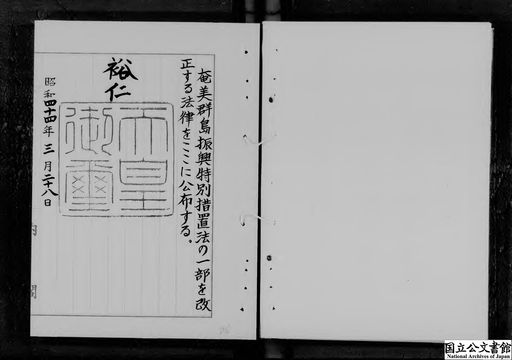 奄美群島振興特別措置法の一部を改
正する法律をここに公布する。
裕仁
天皇
御璽
昭和四十四年三月二十八日
内閣
国立公文書館
National Archives of Japan